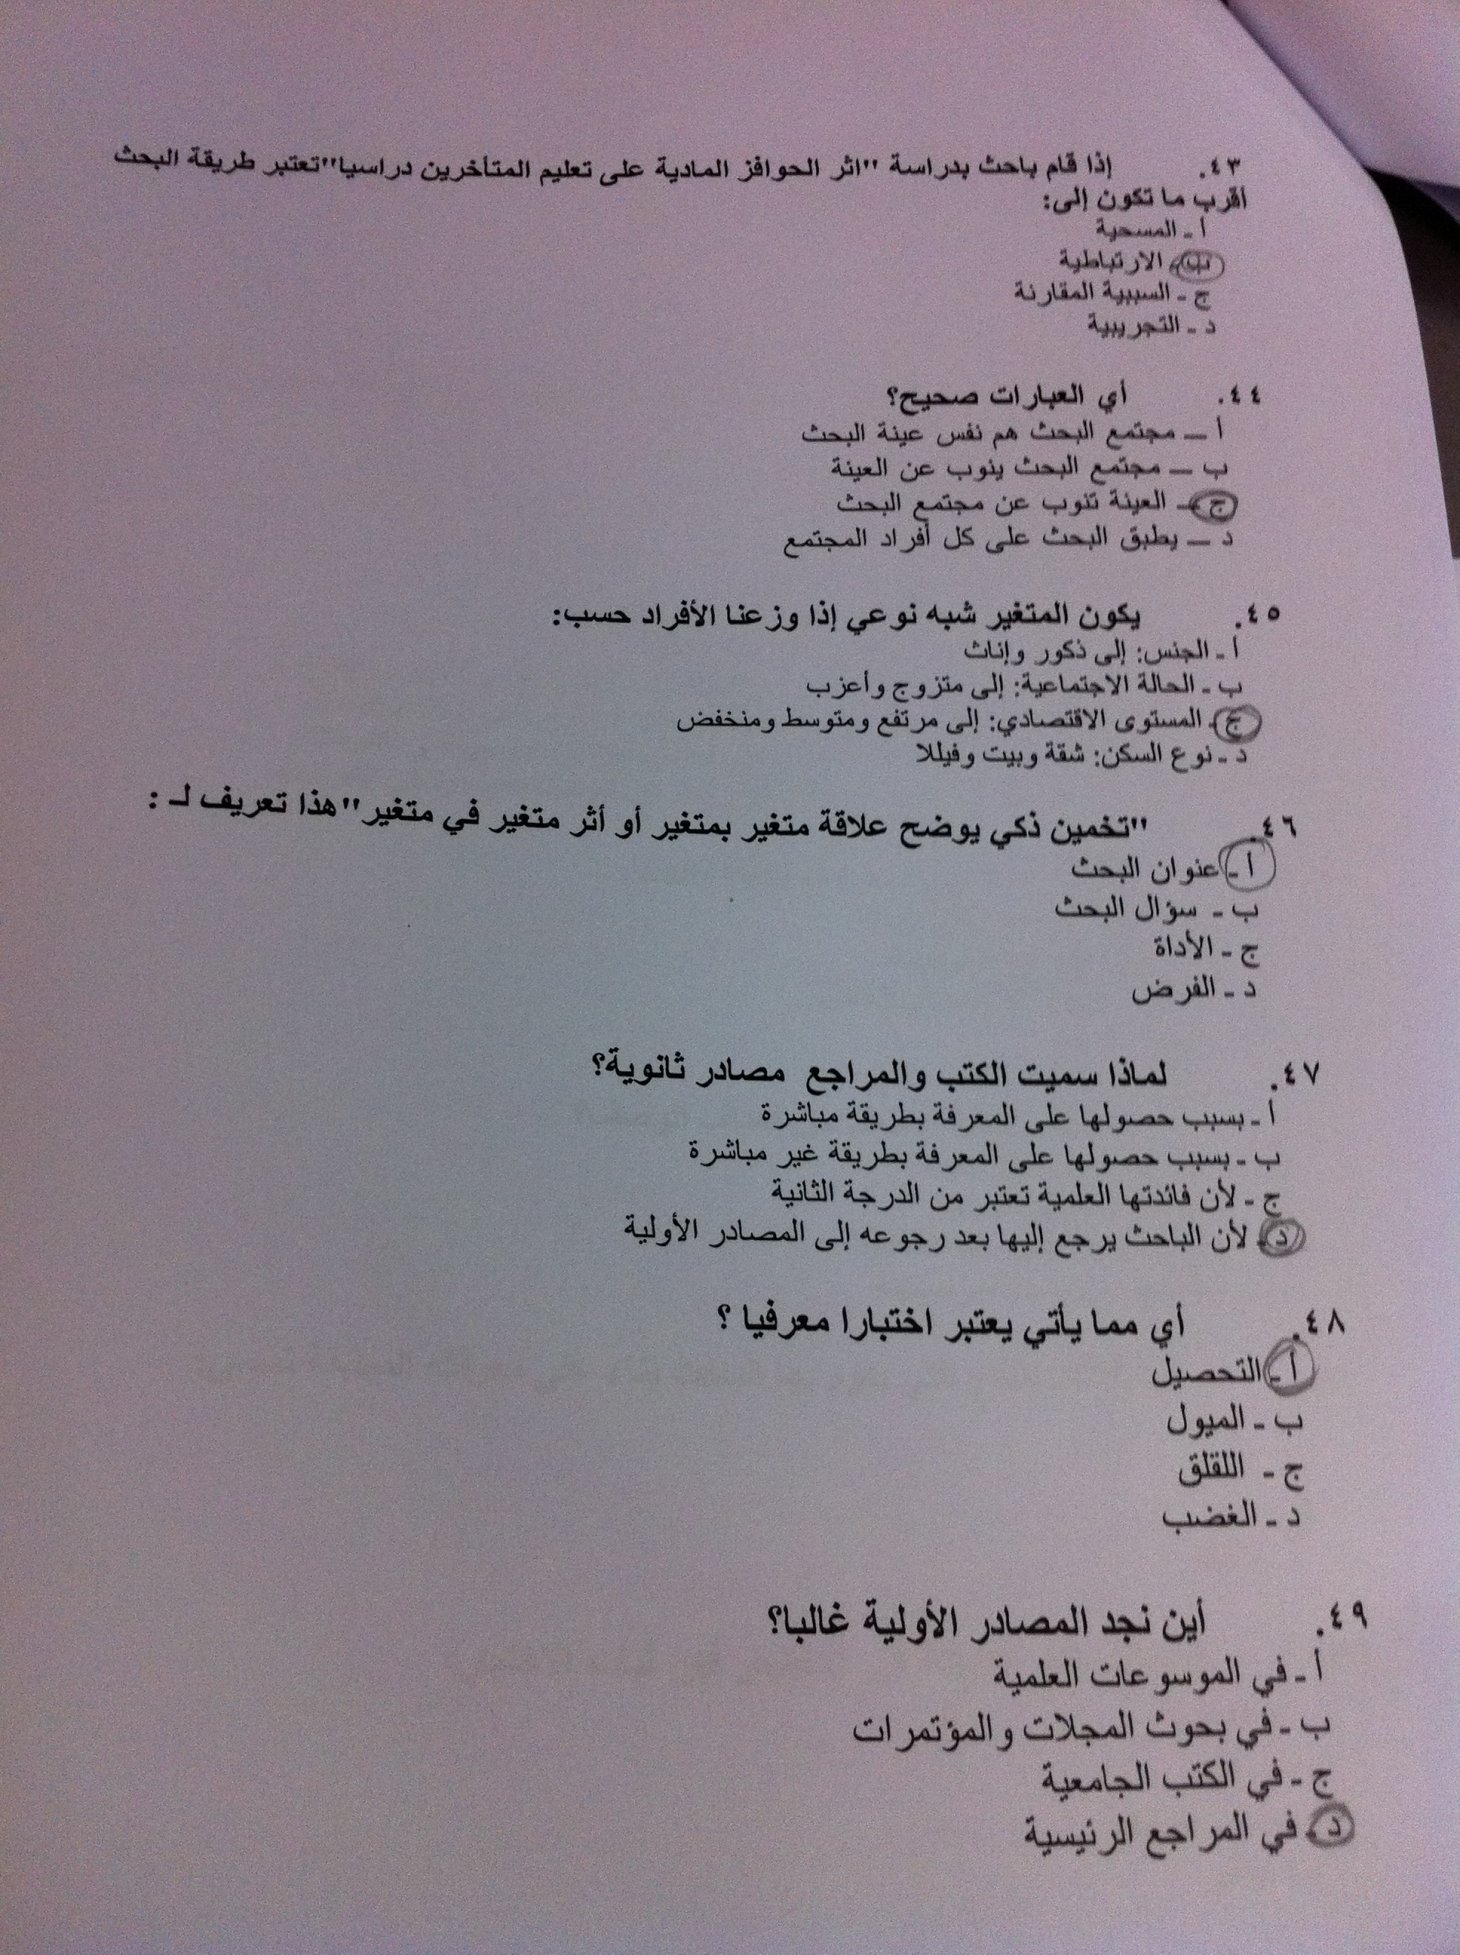 ٤٣. إذا قام باحث بدراسة "اثر الحوافز المادية على تعليم المتأخرين دراسيا" تعتبر طريقة البحث
أقرب ما تكون إلى:
أ - المسحية
ب - الارتباطية
ج - السببية المقارنة
د - التجريبية
٤٤. أي العبارات صحيح؟
أ – مجتمع البحث هم نفس عينة البحث
ب – مجتمع البحث ينوب عن العينة
ج – العينة تنوب عن مجتمع البحث
د – يطبق البحث على كل أفراد المجتمع
٤٥. يكون المتغير شبه نوعي إذا وزعنا الأفراد حسب:
أ - الجنس: إلى ذكور وإناث
ب - الحالة الاجتماعية: إلى متزوج وأعزب
ج - المستوى الاقتصادي: إلى مرتفع ومتوسط ومنخفض
د - نوع السكن: شقة وبيت وفيللا
٤٦. "تخمين ذكي يوضح علاقة متغير بمتغير أو أثر متغير في متغير" هذا تعريف لـ :
أ - عنوان البحث
ب - سؤال البحث
ج - الأداة
د - الفرض
٤٧. لماذا سميت الكتب والمراجع مصادر ثانوية؟
أ - بسبب حصولها على المعرفة بطريقة مباشرة
ب - بسبب حصولها على المعرفة بطريقة غير مباشرة
ج - لأن فائدتها العلمية تعتبر من الدرجة الثانية
د - لأن الباحث يرجع إليها بعد رجوعه إلى المصادر الأولية
٤٨. أي مما يأتي يعتبر اختبارا معرفيا ؟
أ - التحصيل
ب - الميول
ج - اللقلق
د - الغضب
٤٩. أين نجد المصادر الأولية غالبا؟
أ - في الموسوعات العلمية
ب - في بحوث المجلات والمؤتمرات
ج - في الكتب الجامعية
د - في المراجع الرئيسية